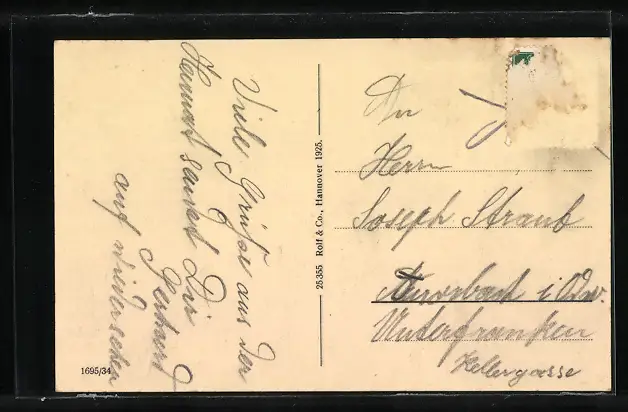 Viele Grüße aus der
Heimat sendet Dir
Gerhard
auf wiedersehen
25 355 Rolf & Co., Hannover 1925.
An
Herrn
Joseph Straub
i. Odw.
Unterfranken
Kellergasse
1695/34